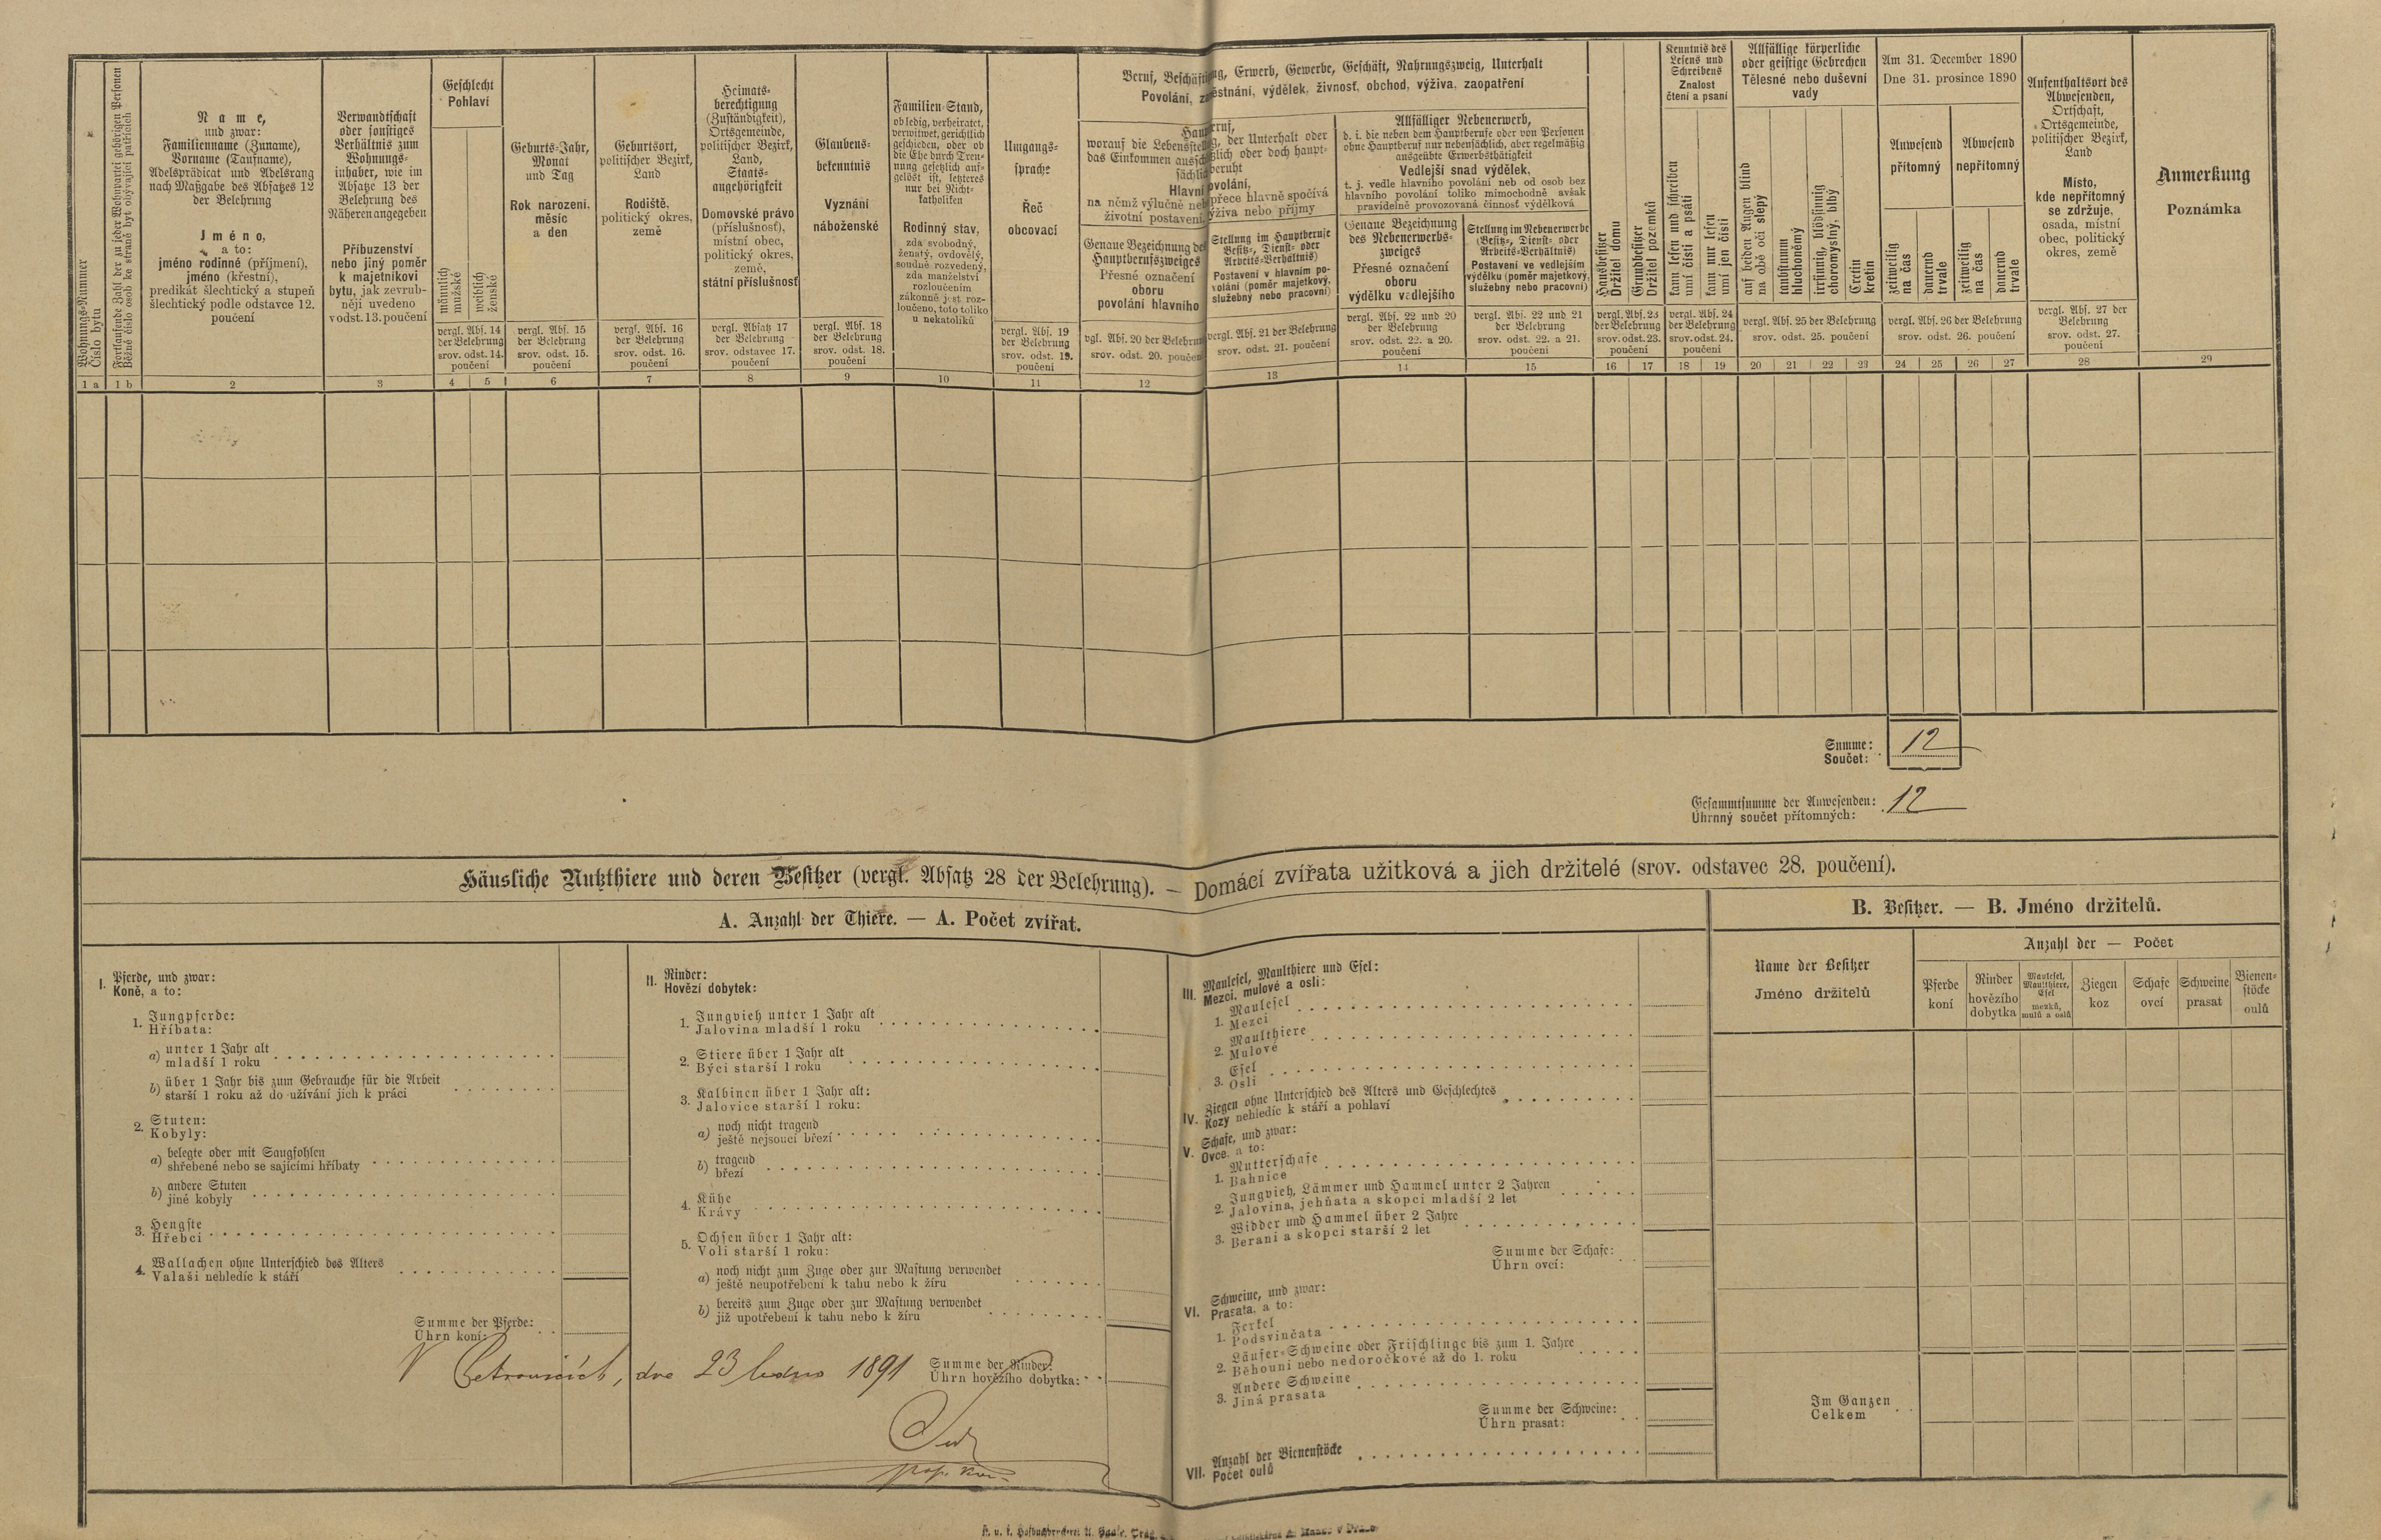 Wohnungs-Nummer
Číslo bytu
Fortlaufende Zahl der zu jeder Wohnpartei gehörigen Personen
Běžné číslo osob ke straně byt obývající patřících
Name,
und zwar:
Familienname (Zuname),
Vorname (Taufname),
Adelsprädicat und Adelsrang
nach Maßgabe des Absatzes 12
der Belehrung
Jméno,
a to:
jméno rodinné (příjmení),
jméno (křestní),
predikát šlechtický a stupeň
šlechtický podle odstavce 12.
poučení
Verwandtschaft
oder sonstiges
Verhältnis zum
Wohnungs-
inhaber, wie im
Absatze 13 der
Belehrung des
Näheren angegeben
Příbuzenství
nebo jiný poměr
k majetníkovi
bytu, jak zevrub-
něji uvedeno
v odst. 13. poučení
Geschlecht
Pohlaví
männlich
mužské
weiblich
ženské
vergl. Abs. 14
der Belehrung
srov. odst. 14.
poučení
Geburts-Jahr,
Monat
und Tag
Rok narození,
měsíc
a den
vergl. Abs. 15
der Belehrung
srov. odst. 15.
poučení
Geburtsort,
politischer Bezirk,
Land
Rodiště,
politický okres,
země
vergl. Abs. 16
der Belehrung
srov. odst. 16.
poučení
Heimats-
berechtigung
(Zuständigkeit),
Ortsgemeinde,
politischer Bezirk,
Land,
Staats-
angehörigkeit
Domovské právo
(příslušnosť),
místní obec,
politický okres,
země,
státní příslušnosť
vergl. Absatz 17
der Belehrung
srov. odstavec 17.
poučení
Glaubens-
bekenntnis
Vyznání
náboženské
vergl. Abs. 18
der Belehrung
srov. odst. 18.
poučení
Familien-Stand,
ob ledig, verheiratet,
verwitwet, gerichtlich
geschieden, oder ob
die Ehe durch Tren-
nung gesetzlich auf-
gelöst ist, letzteres
nur bei Nicht-
katholiken
Rodinný stav,
zda svobodný,
ženatý, ovdovělý,
soudně rozvedený,
zda manželství
rozloučením
zákonně jest roz-
loučeno, toto toliko
u nekatolíků
Umgangs-
sprache
Řeč
obcovací
vergl. Abs. 19
der Belehrung
srov. odst. 19.
poučení
Beruf, Beschäftigung, Erwerb, Gewerbe, Geschäft, Nahrungszweig, Unterhalt
Povolání, zaměstnání, výdělek, živnosť, obchod, výživa, zaopatření
Hauptberuf,
worauf die Lebensstellung, der Unterhalt oder
das Einkommen ausschließlich oder doch haupt-
sächlich beruht
Hlavní povolání,
na němž výlučně neb přece hlavně spočívá
životní postavení, výživa nebo příjmy
Genaue Bezeichnung des
Hauptberufszweiges
Přesné označení
oboru
povolání hlavního
vgl. Abs. 20 der Belehrung
srov. odst. 20. poučení
Stellung im Hauptberufe
(Besitz-, Dienst- oder
Arbeits-Verhältnis)
Postavení v hlavním po-
volání (poměr majetkový,
služebný nebo pracovní)
vergl. Abs. 21 der Belehrung
srov. odst. 21. poučení
Allfälliger Nebenerwerb,
d. i. die neben dem Hauptberufe oder von Personen
ohne Hauptberuf nur nebensächlich, aber regelmäßig
ausgeübte Erwerbsthätigkeit
Vedlejší snad výdělek,
t. j. vedle hlavního povolání neb od osob bez
hlavního povolání toliko mimochodně avšak
pravidelně provozovaná činnosť výdělková
Genaue Bezeichnung
des Nebenerwerbs-
zweiges
Přesné označení
oboru
výdělku vedlejšího
vergl. Abs. 22 und 20
der Belehrung
srov. odst. 22. a 20.
poučení
Stellung im Nebenerwerbe
(Besitz-, Dienst- oder
Arbeits-Verhältnis)
Postavení ve vedlejším
výdělku (poměr majetkový,
služebný nebo pracovní)
vergl. Abs. 22 und 21
der Belehrung
srov. odst. 22. a 21.
poučení
Hausbesitzer
Držitel domu
Grundbesitzer
Držitel pozemků
vergl. Abs. 23
der Belehrung
srov. odst. 23.
poučení
Kenntnis des
Lesens und
Schreibens
Znalost
čtení a psaní
kann lesen und schreiben
umí čísti a psáti
kann nur lesen
umí jen čísti
vergl. Abs. 24
der Belehrung
srov. odst. 24.
poučení
Allfällige körperliche
oder geistige Gebrechen
Tělesné nebo duševní
vady
auf beiden Augen blind
na obě oči slepý
taubstumm
hluchoněmý
irrsinnig, blödsinnig
choromyslný, blbý
Cretin
kretin
vergl. Abs. 25 der Belehrung
srov. odst. 25. poučení
Am 31. December 1890
Dne 31. prosince 1890
Anwesend
přítomný
Abwesend
nepřítomný
zeitweilig
na čas
dauernd
trvale
zeitweilig
na čas
dauernd
trvale
vergl. Abs. 26 der Belehrung
srov. odst. 26. poučení
Aufenthaltsort des
Abwesenden,
Ortschaft,
Ortsgemeinde,
politischer Bezirk,
Land
Místo,
kde nepřítomný
se zdržuje,
osada, místní
obec, politický
okres, země
vergl. Abs. 27 der
Belehrung
srov. odst. 27.
poučení
Anmerkung
Poznámka
1 a 1 b 2 3 4 5 6 7 8 9 10 11 12 13 14 15 16 17 18 19 20 21 22 23 24 25 26 27 28 29
Summe:
Součet: 12
Gesammtsumme der Anwesenden:
Úhrnný součet přítomných: 12
Häusliche Nutzthiere und deren Besitzer (vergl. Absatz 28 der Belehrung). — Domácí zvířata užitková a jich držitelé (srov. odstavec 28. poučení).
A. Anzahl der Thiere. — A. Počet zvířat.
I. Pferde, und zwar:
Koně, a to:
1. Jungpferde:
Hříbata:
a) unter 1 Jahr alt
mladší 1 roku
b) über 1 Jahr bis zum Gebrauche für die Arbeit
starší 1 roku až do užívání jich k práci
2. Stuten:
Kobyly:
a) belegte oder mit Saugfohlen
shřebené nebo se sajícími hříbaty
b) andere Stuten
jiné kobyly
3. Hengste
Hřebci
4. Wallachen ohne Unterschied des Alters
Valaši nehledíc k stáří
Summe der Pferde:
Úhrn koní:
II. Rinder:
Hovězí dobytek:
1. Jungvieh unter 1 Jahr alt
Jalovina mladší 1 roku
2. Stiere über 1 Jahr alt
Býci starší 1 roku
3. Kalbinen über 1 Jahr alt:
Jalovice starší 1 roku:
a) noch nicht tragend
ještě nejsoucí březí
b) tragend
březí
4. Kühe
Krávy
5. Ochsen über 1 Jahr alt:
Voli starší 1 roku:
a) noch nicht zum Zuge oder zur Mastung verwendet
ještě neupotřebení k tahu nebo k žíru
b) bereits zum Zuge oder zur Mastung verwendet
již upotřebení k tahu nebo k žíru
Summe der Rinder:
Úhrn hovězího dobytka:
V Petrovicích, dne 23 ledna 1891
III. Maulesel, Maulthiere und Esel:
Mezci, mulové a osli:
1. Maulesel
Mezci
2. Maulthiere
Mulové
3. Esel
Osli
IV. Ziegen ohne Unterschied des Alters und Geschlechtes
Kozy nehledíc k stáří a pohlaví
V. Schafe, und zwar:
Ovce, a to:
1. Mutterschafe
Bahnice
2. Jungvieh, Lämmer und Hammel unter 2 Jahren
Jalovina, jehňata a skopci mladší 2 let
3. Widder und Hammel über 2 Jahre
Berani a skopci starší 2 let
Summe der Schafe:
Úhrn ovcí:
VI. Schweine, und zwar:
Prasata, a to:
1. Ferkel
Podsvinčata
2. Läufer-Schweine oder Frischlinge bis zum 1. Jahre
Běhouni nebo nedoročkové až do 1. roku
3. Andere Schweine
Jiná prasata
Summe der Schweine:
Úhrn prasat:
VII. Anzahl der Bienenstöcke
Počet oulů
B. Besitzer. — B. Jméno držitelů.
Name der Besitzer
Jméno držitelů
Anzahl der — Počet
Pferde
koní
Rinder
hovězího
dobytka
Maulesel,
Maulthiere,
Esel
mezků,
mulů a oslů
Ziegen
koz
Schafe
ovcí
Schweine
prasat
Bienen-
stöcke
oulů
Im Ganzen
Celkem
K. u. k. Hofbuchdruckerei A. Haase, Prag